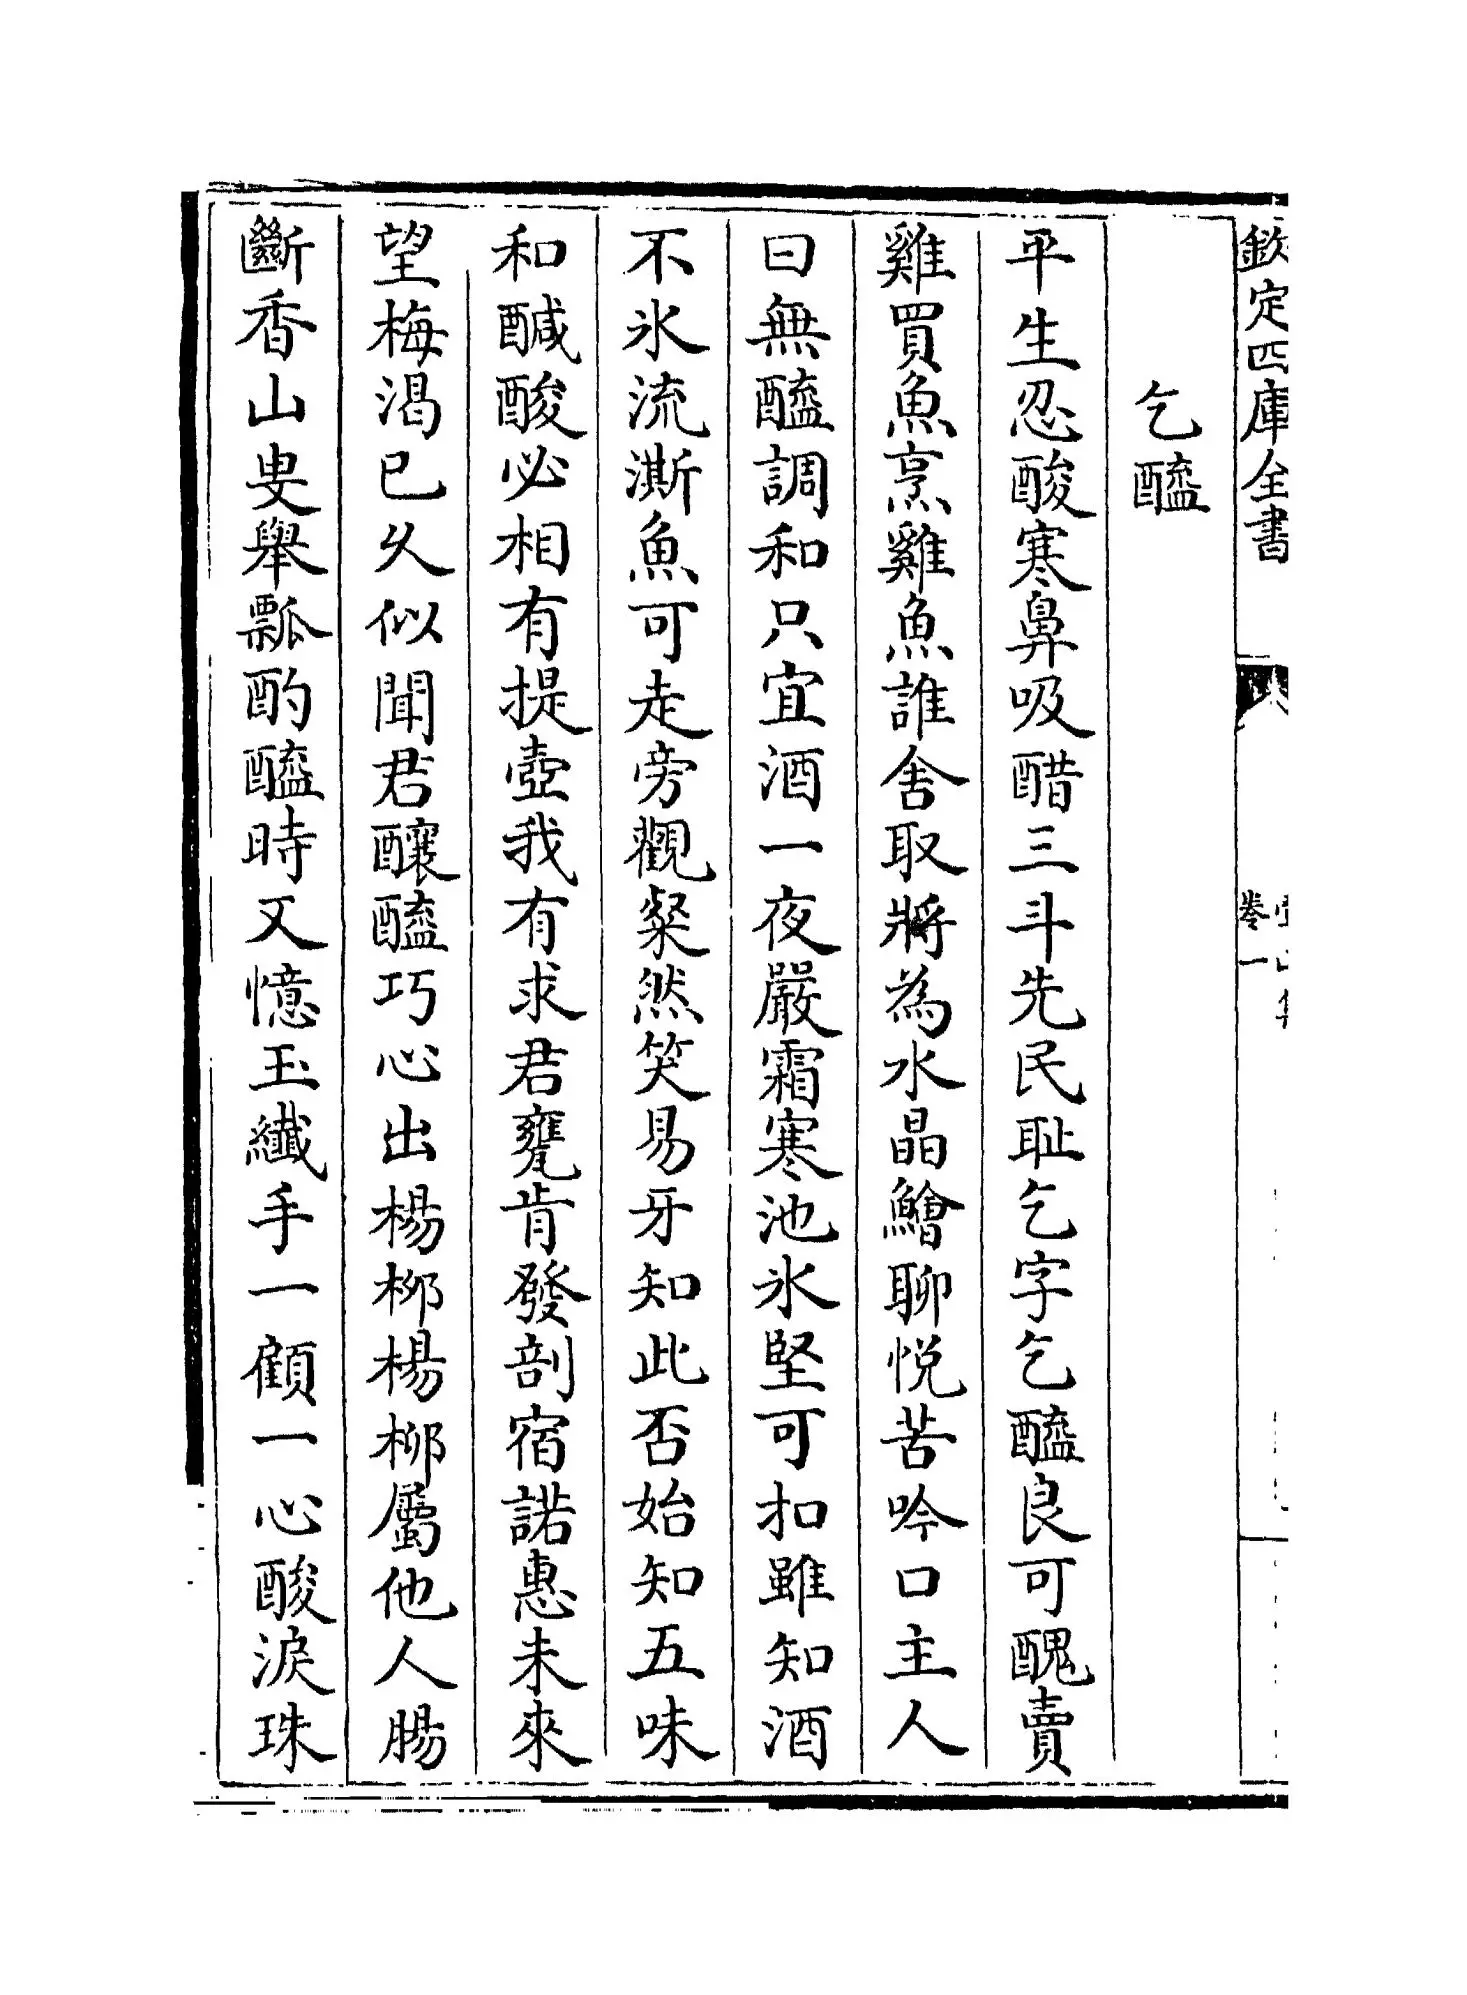 欽定四庫全書
卷一
乞醯
平生忍酸寒鼻吸醋三斗先民耻乞字乞醯良可醜賣
雞買魚烹雞魚誰舍取將為水晶鱠聊悦苦吟口主人
曰無醯調和只宜酒一夜嚴霜寒池氷堅可扣雖知酒
不氷流澌魚可走旁觀粲然笑易牙知此否始知五味
和醎酸必相有提壺我有求君甕肯發剖宿諾惠未來
望梅渴已久似聞君釀醯巧心出楊柳楊柳屬他人腸
斷香山叟舉瓢酌醯時又憶玉纖手一顧一心酸淚珠